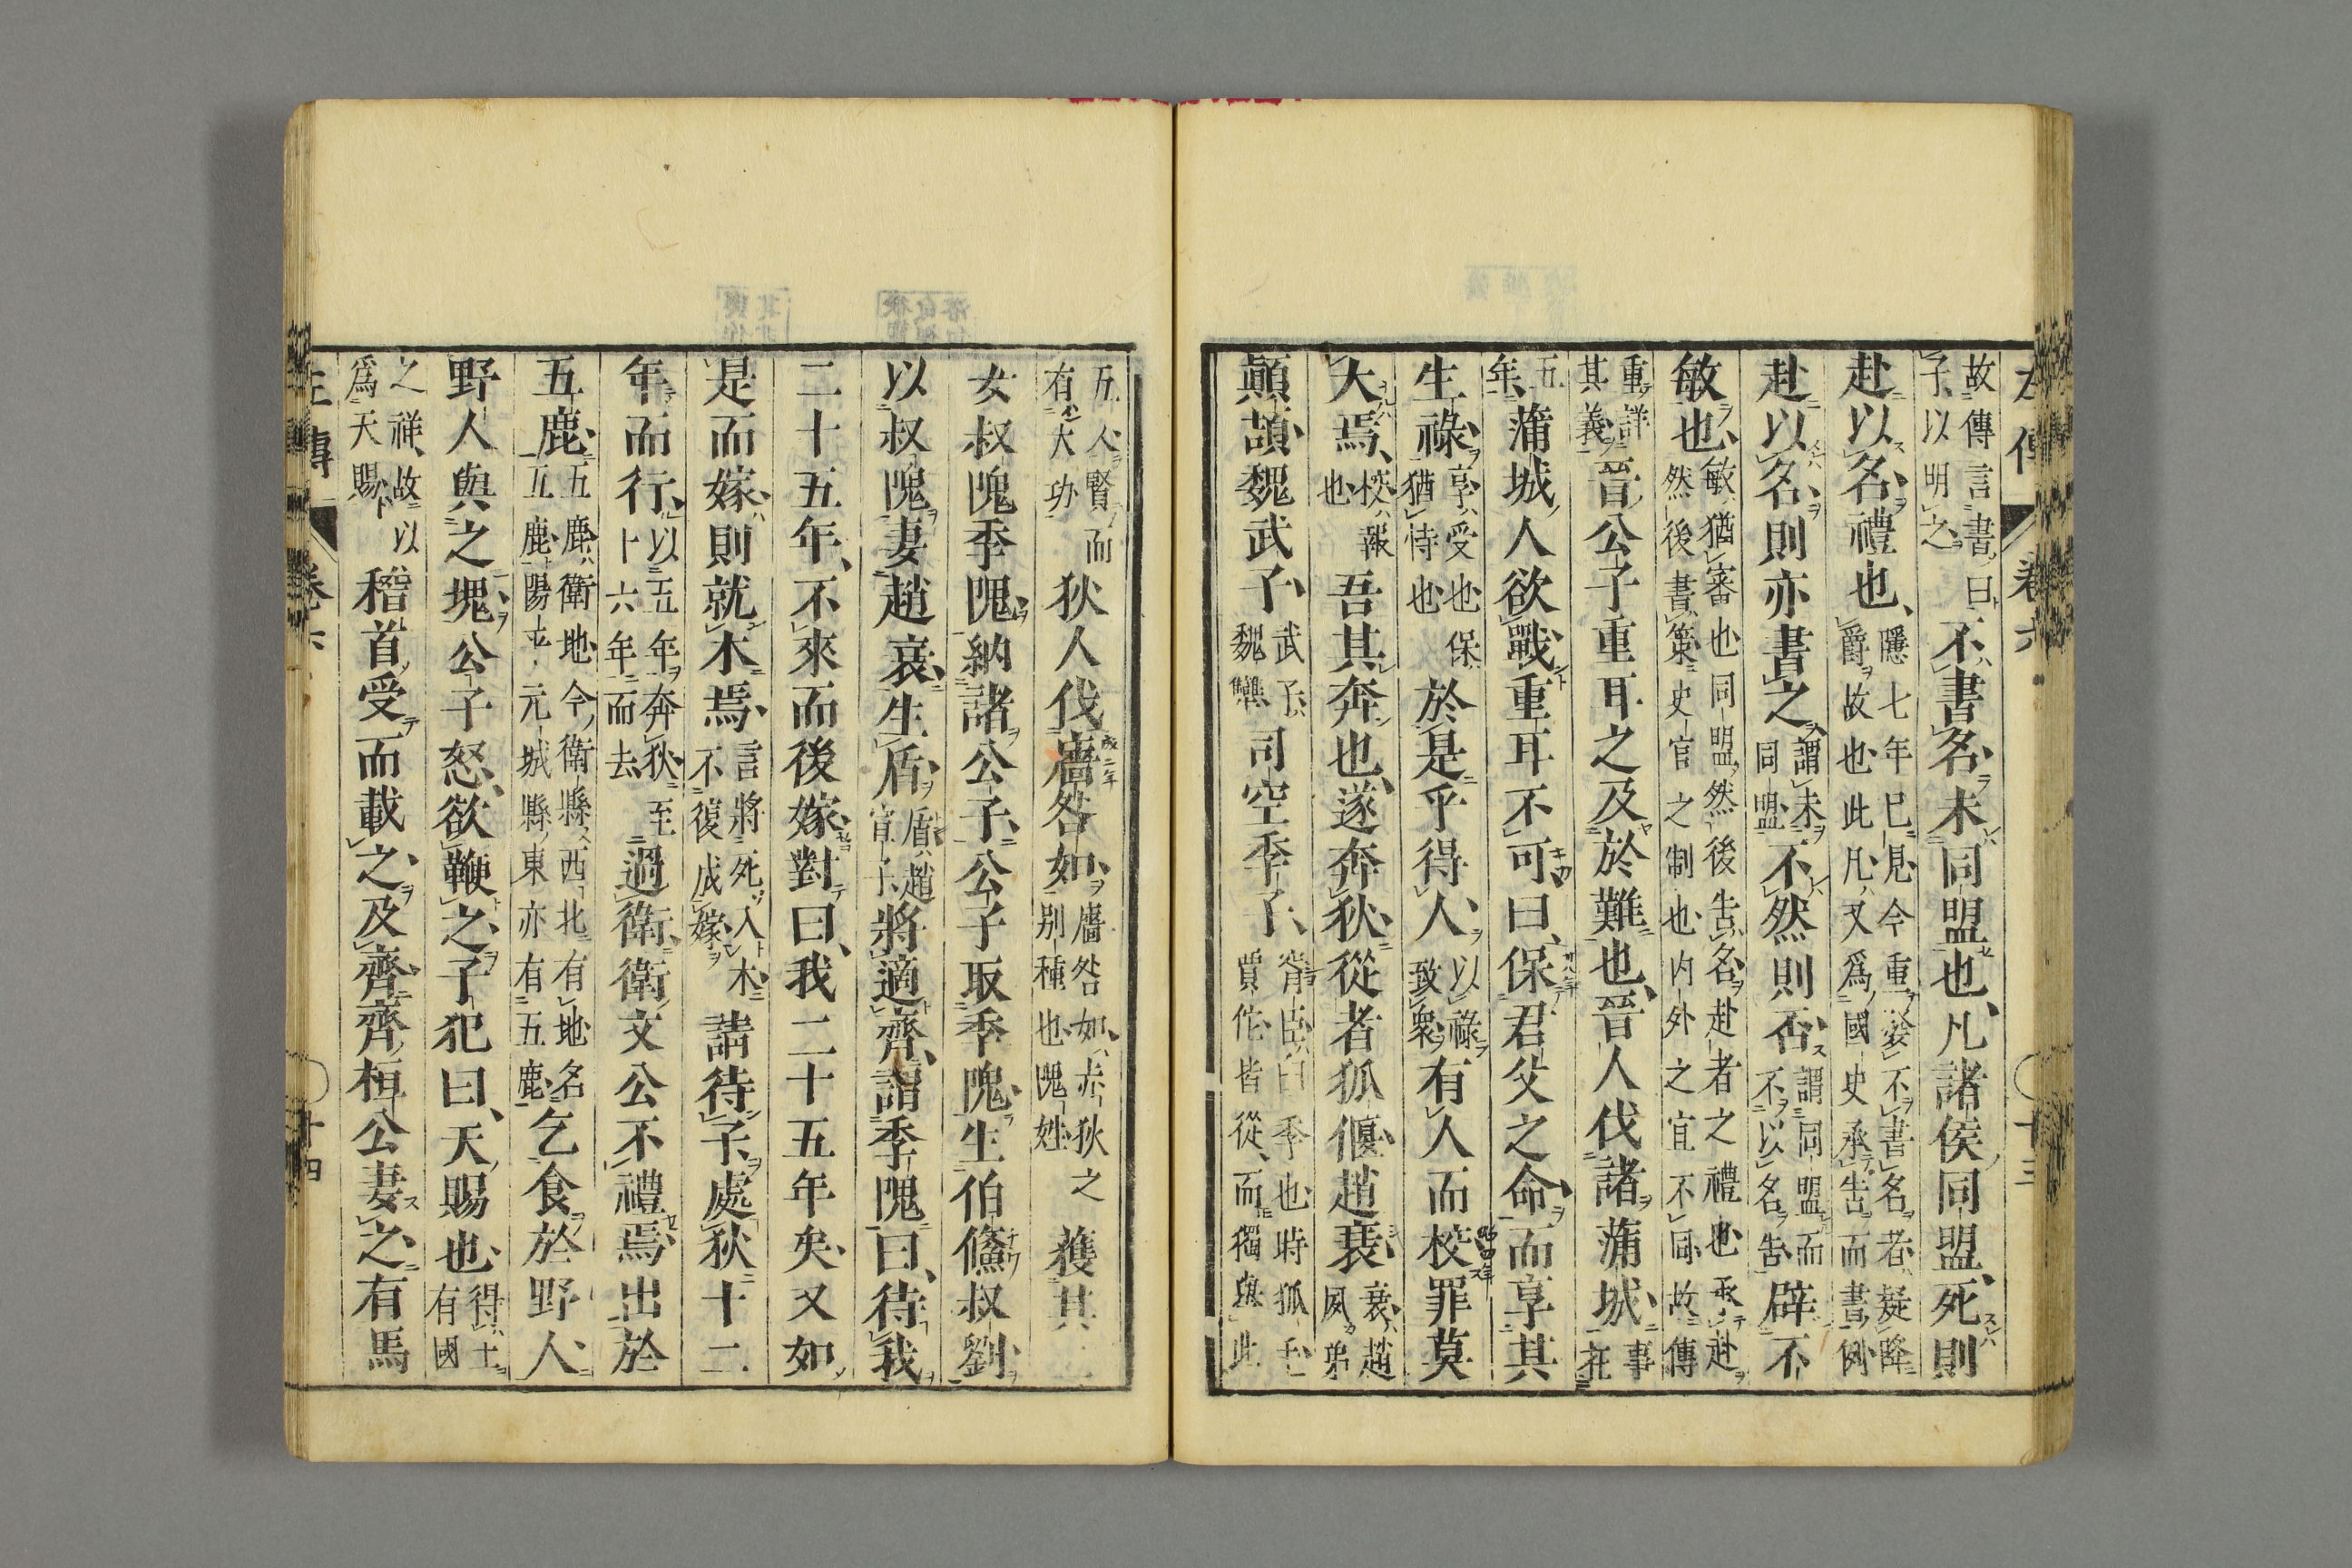 故傳言書曰子以明之不書名未同盟也凡諸侯同盟死則
赴以名禮也隱七年已見今重發不書名者疑降爵故也此凡又爲國史承告而書例
赴以名則亦書之謂未同盟不然則否謂同盟而不以名告辟不
敏也敏猶審也同盟然後告名赴者之禮也承赴然後書策史官之制也内外之宜不同故傳
重詳其義晉公子重耳之及於難也晉人伐諸蒲城事在
五年蒲城人欲戰重耳不可曰保君父之命而享其
生祿享受也保猶恃也於是乎得人以祿致衆有人而校罪莫
大焉校報也吾其奔也遂奔狄從者狐偃趙衰衰趙夙弟
顚頡魏武子武子魏犨司空季子胥臣臼季也時狐毛賈佗皆從而獨舉此
五人賢而有大功狄人伐廧咎如廧咎如赤狄之别種也隗姓獲其二
女叔隗季隗納諸公子公子取季隗生伯鯈叔劉
以叔隗妻趙衰生盾盾趙宣子將適齊謂季隗曰待我
二十五年不來而後嫁對曰我二十五年矣又如
是而嫁則就木焉言將死入木不復成嫁請待子處狄十二
年而行以五年奔狄至十六年而去過衛衛文公不禮焉出於
五鹿五鹿衛地今衛縣西北有地名五鹿陽平元城縣東亦有五鹿乞食於野人
野人與之塊公子怒欲鞭之子犯曰天賜也得土有國
之祥故以爲天賜稽首受而載之及齊齊桓公妻之有馬
左傳 卷六 十四